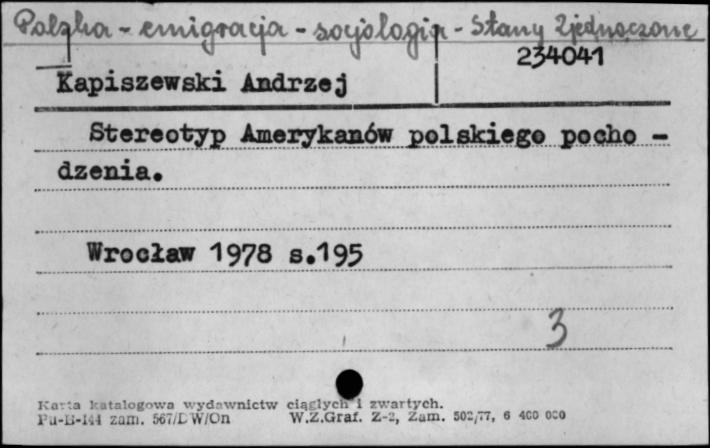 Polska - emigracja - socjologia - Stany Zjednoczone
234041
Kapiszewski Andrzej
Stereotyp Amerykanów polskiego pocho -
dzenia.
Wrocław 1978 s.195
3
Karta katalogowa wydawnictw ciągłych i zwartych.
Pu-B-144 zam. 567/DW/On W.Z.Graf. Z-2, Zam. 502/77, 6 400 000